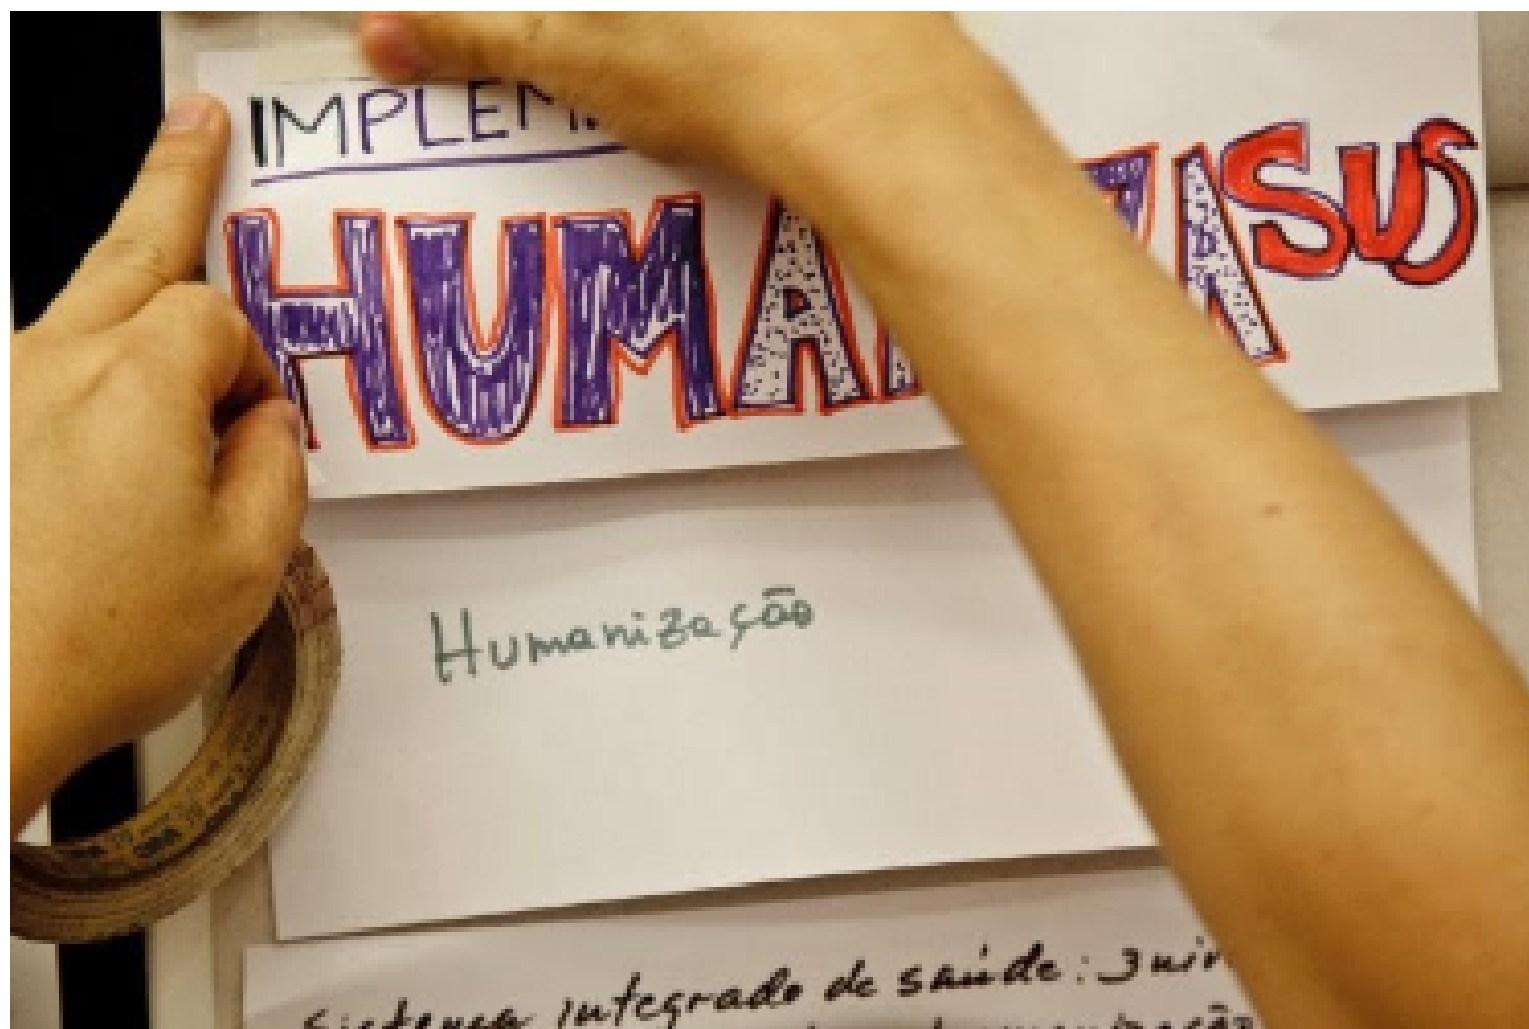 IMPLEM
HUMA ZA SUS
Humanização
Sistema integrado de saúde: 3 nív